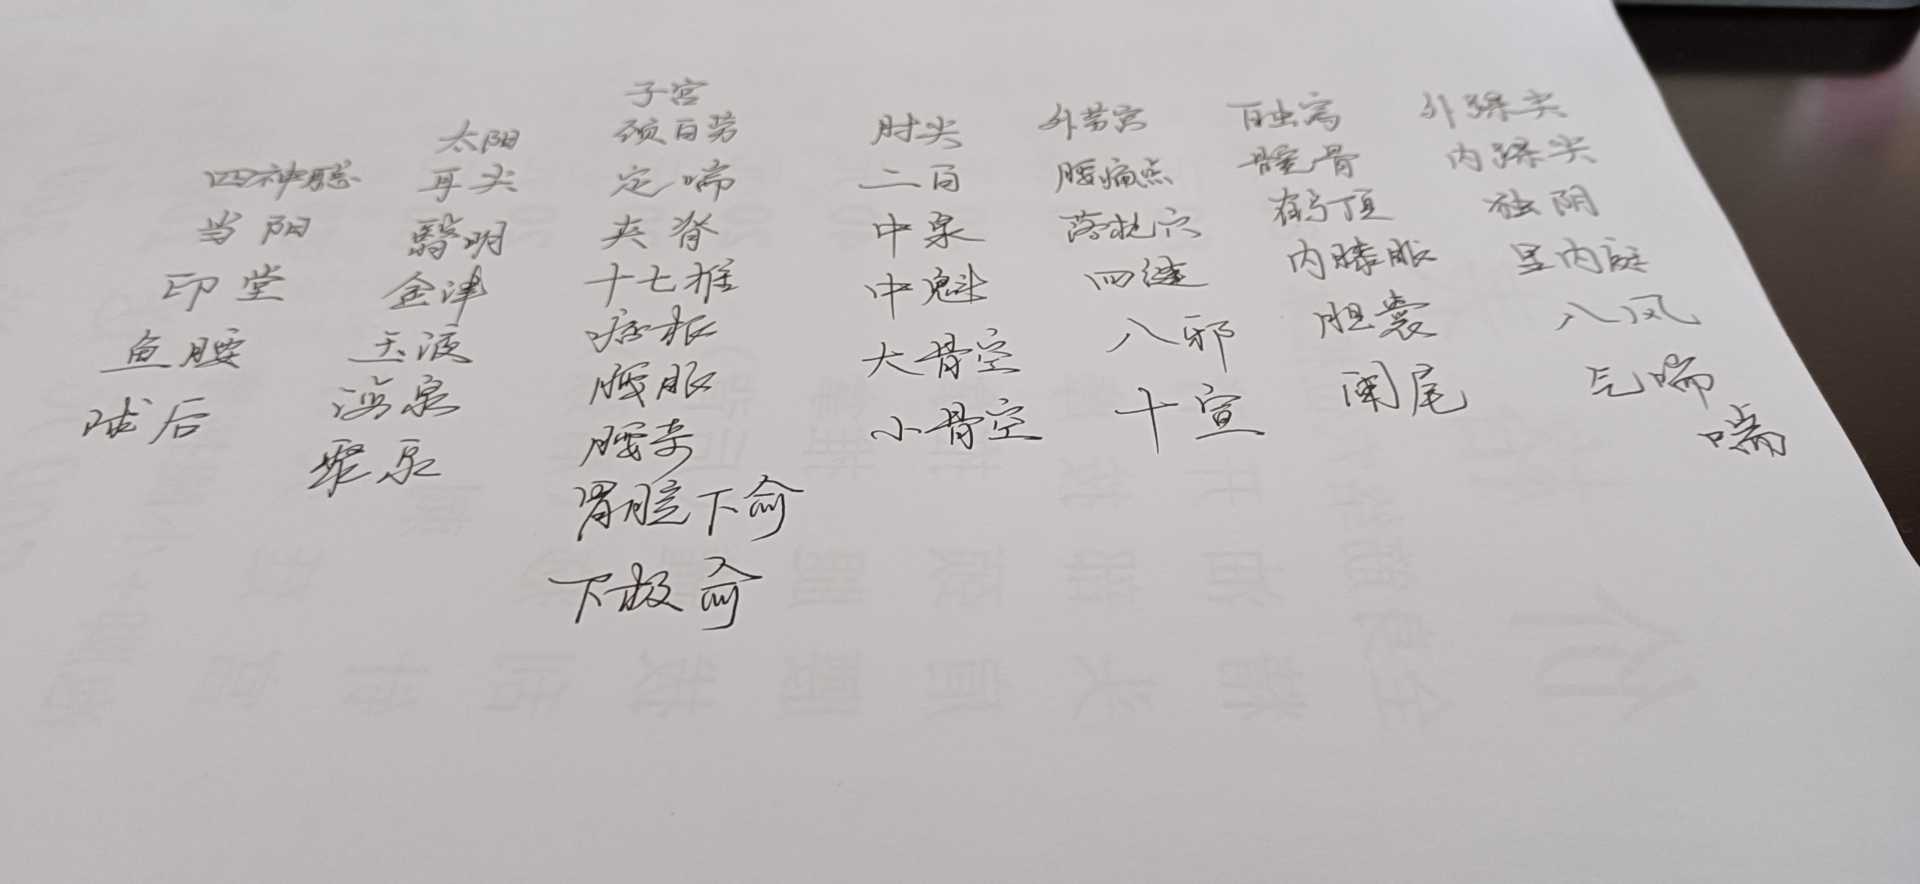 四神聪
当阳
印堂
鱼腰
球后
太阳
耳尖
翳明
金津
玉液
海泉
聚泉
子宫
颈百劳
定喘
夹脊
十七椎
痞根
腰眼
腰奇
胃脘下俞
下极俞
肘尖
二百
中泉
中魁
大骨空
小骨空
外劳宫
腰痛点
落枕穴
四缝
八邪
十宣
百虫窝
髋骨
鹤顶
内膝眼
胆囊
阑尾
外踝尖
内踝尖
独阴
里内庭
八风
气喘
喘